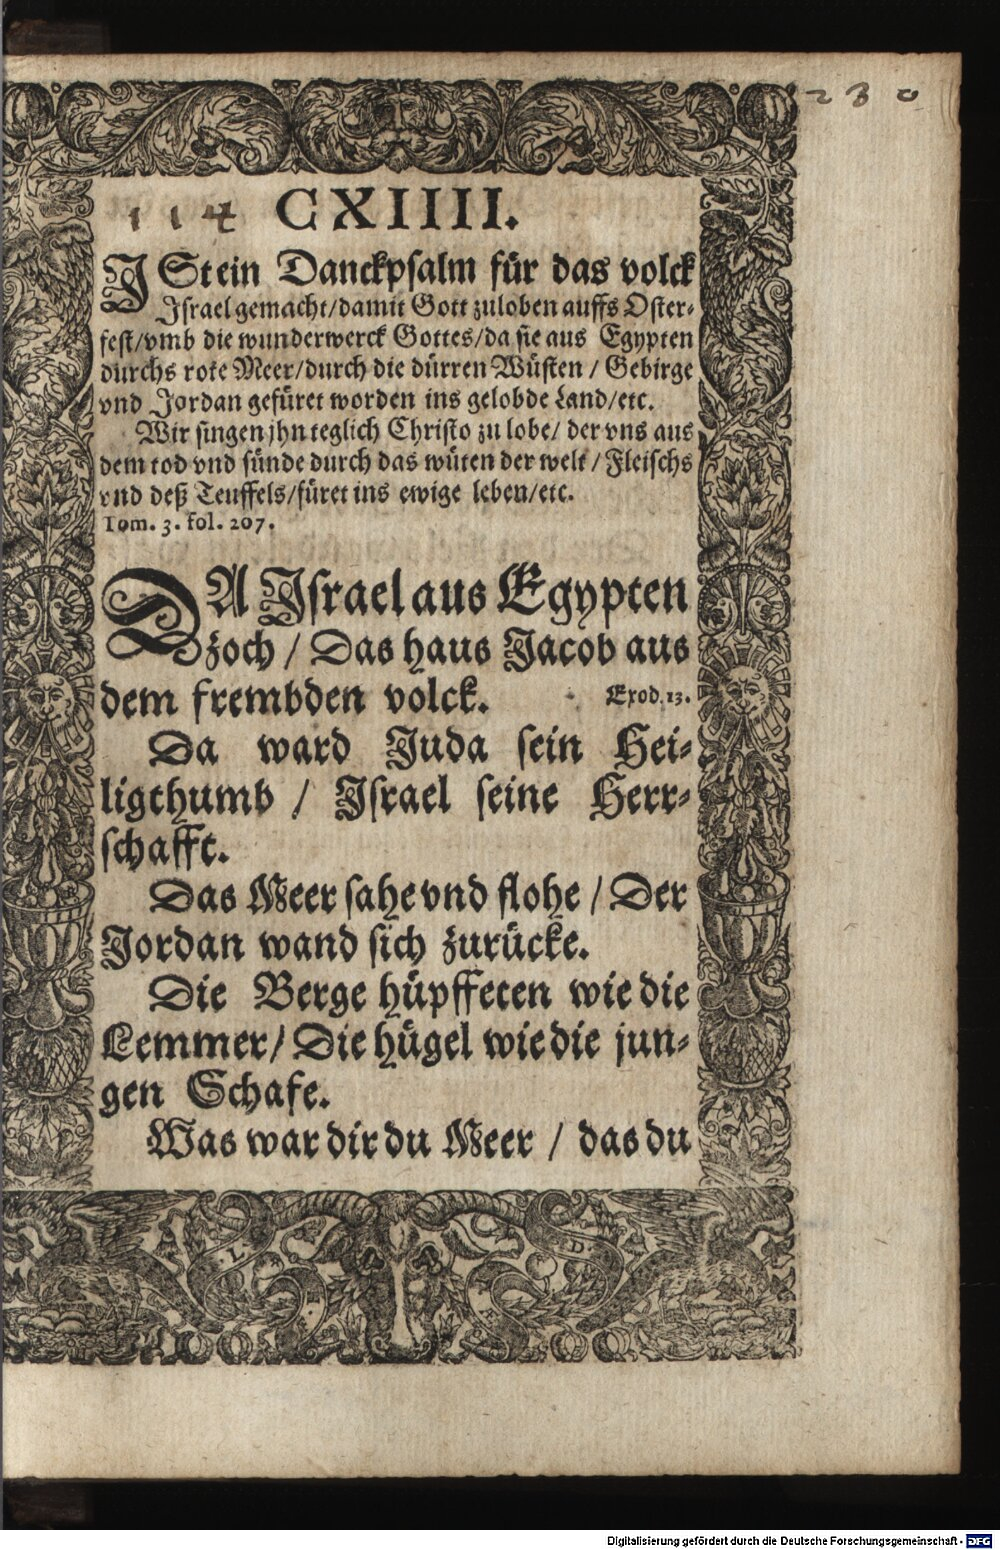 230
114 CXIIII.
ISt ein Danckpsalm für das volck
Israel gemacht/damit Gott zuloben auffs Oster-
fest/vmb die wunderwerck Gottes/da sie aus Egypten
durchs rote Meer/durch die dürren Wüsten / Gebirge
vnd Jordan gefüret worden ins gelobde Land/etc.
Wir singen jhn teglich Christo zu lobe/ der vns aus
dem tod vnd sünde durch das wüten der welt / Fleischs
vnd deß Teuffels/füret ins ewige leben/etc.
Tom. 3. fol. 207.
DA Jsrael aus Egypten
zoch / Das haus Jacob aus
dem frembden volck. Exod. 13.
Da ward Juda sein Hei-
ligthumb / Jsrael seine Herr-
schafft.
Das Meer sahe vnd flohe / Der
Jordan wand sich zurücke.
Die Berge hüpffeten wie die
Lemmer/ Die hügel wie die jun-
gen Schafe.
Was war dir du Meer / das du
L D
Digitalisierung gefördert durch die Deutsche Forschungsgemeinschaft - DFG